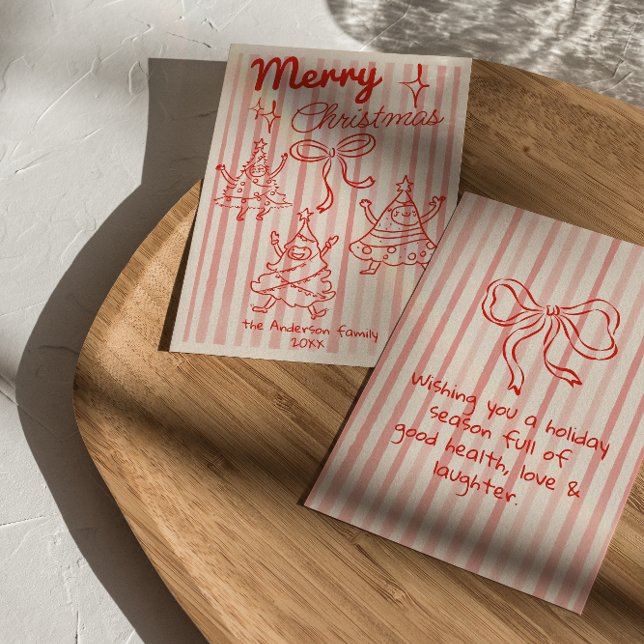 Merry
Christmas
the Anderson family
20XX
Wishing you a holiday
season full of
good health, love &
laughter.